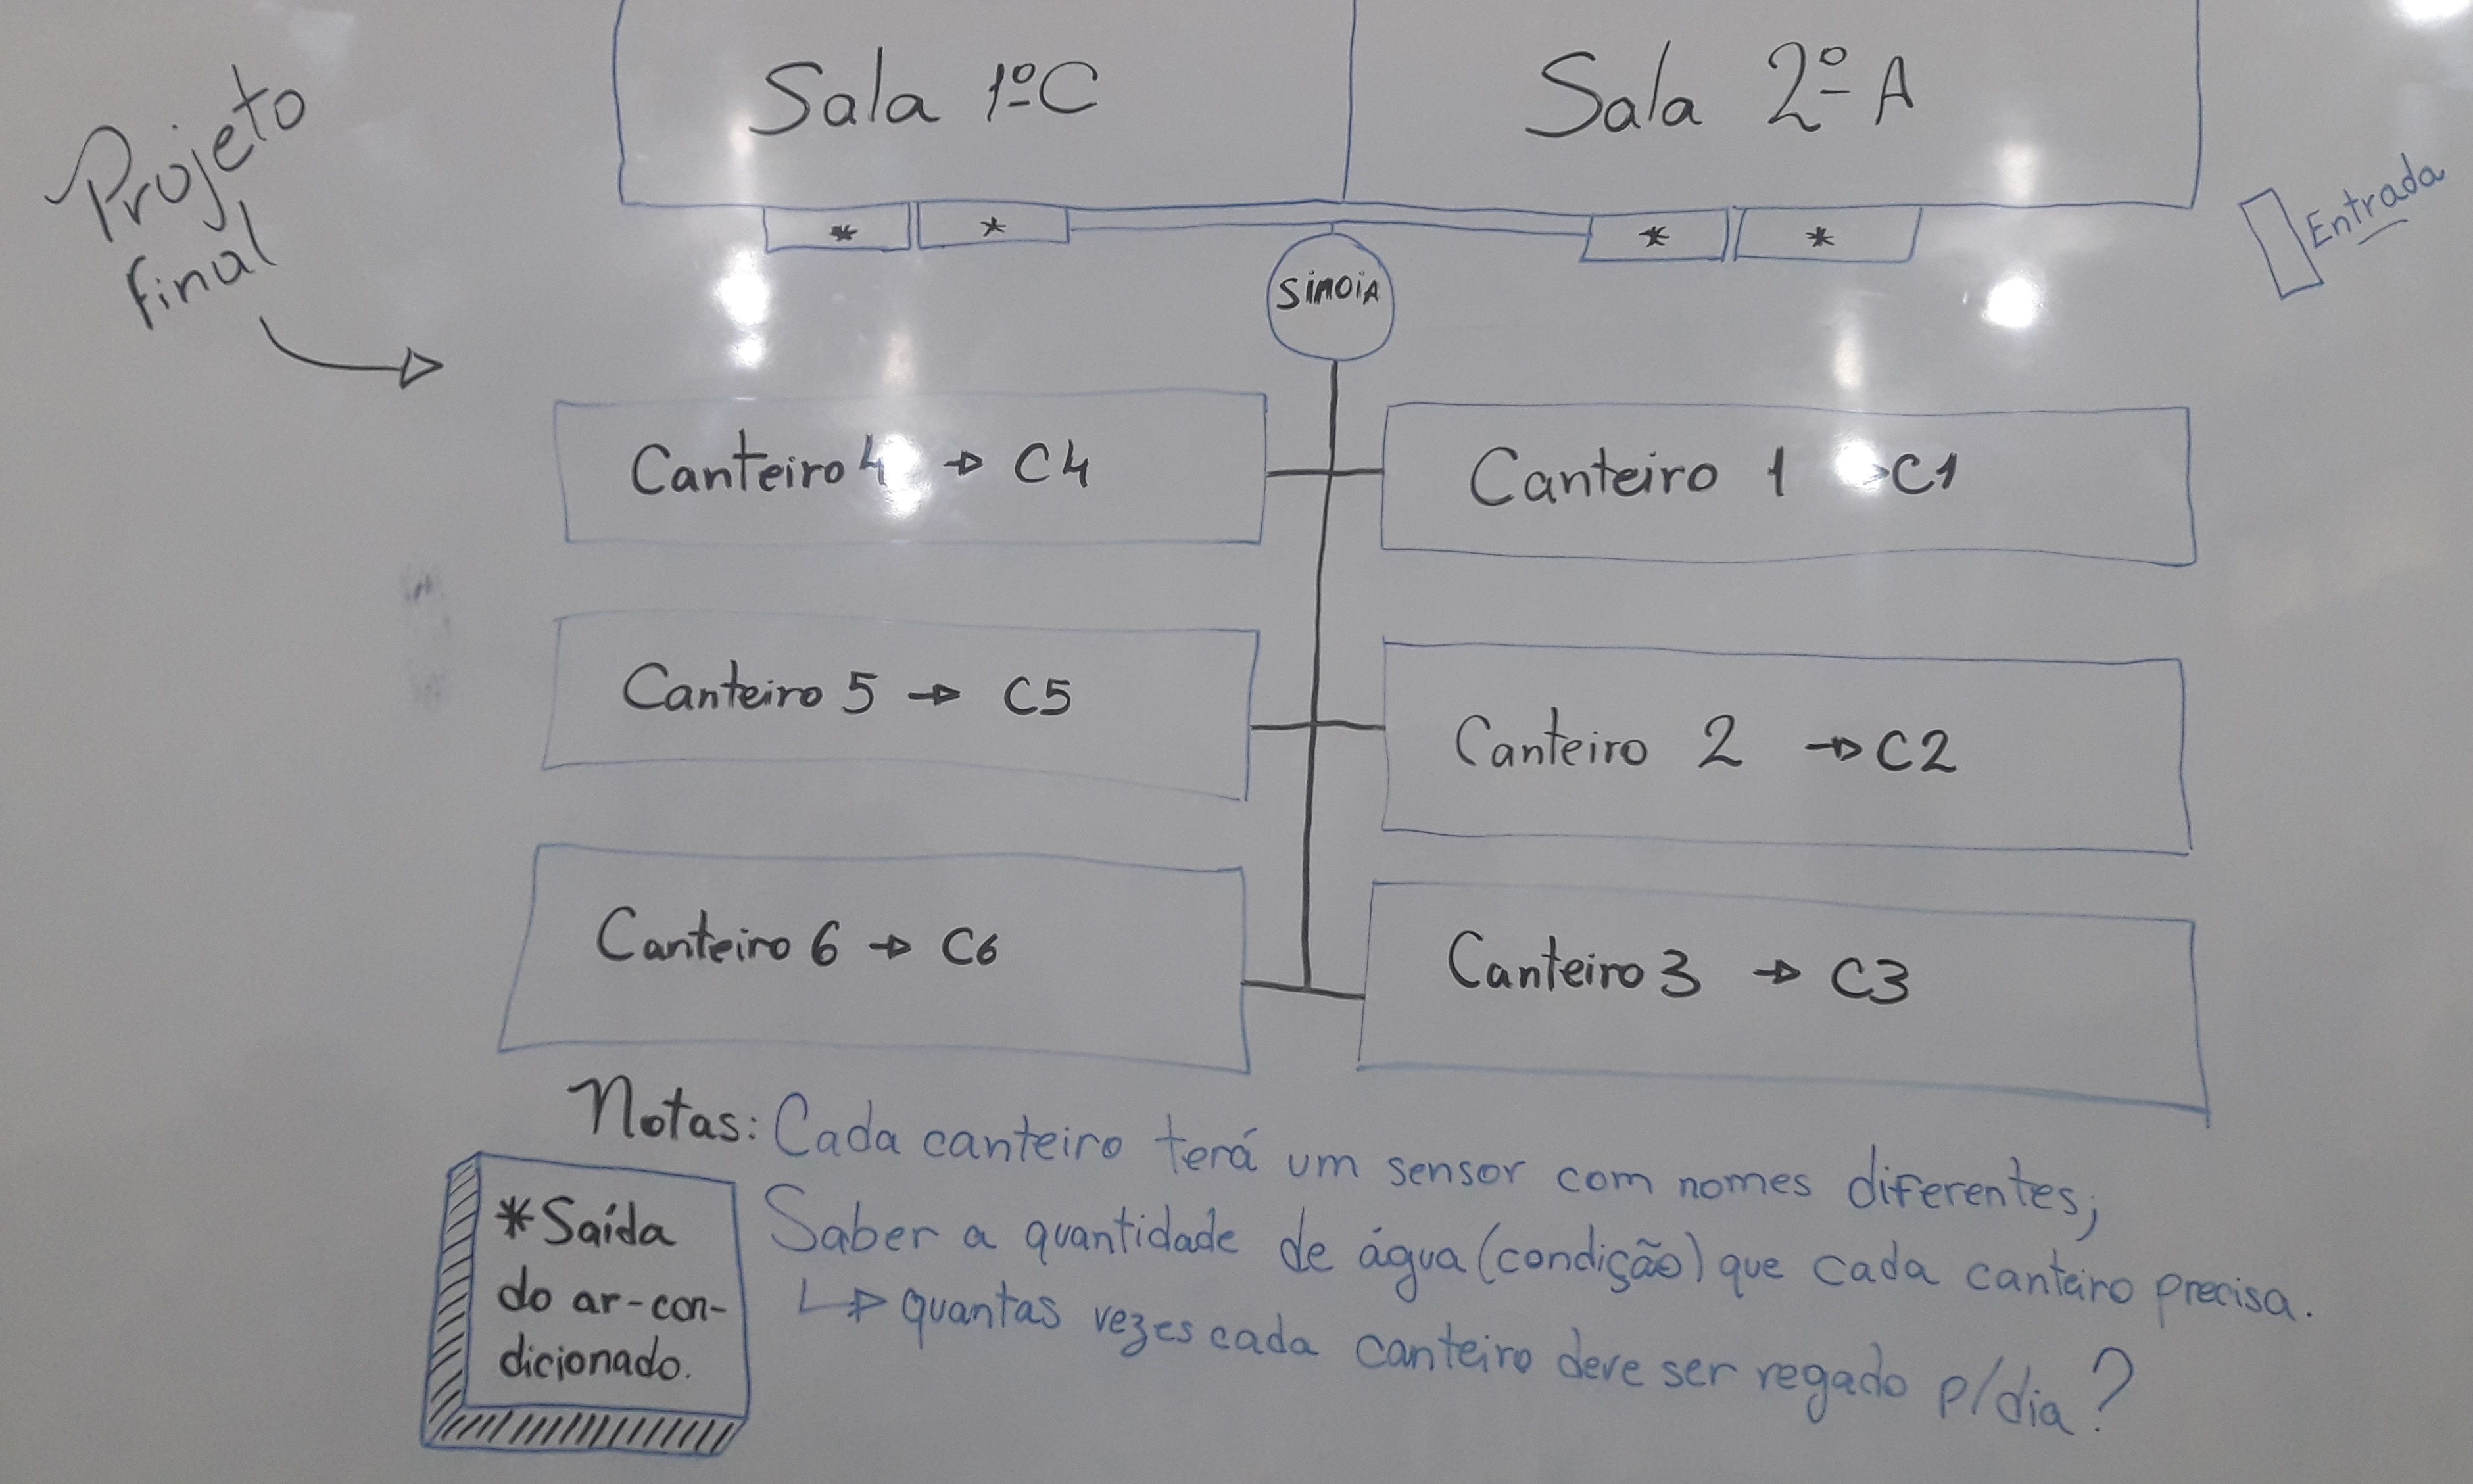 Projeto
final
Sala 1º C
Sala 2º A
Entrada
* * * *
SiMOiA
Canteiro 4 → C4
Canteiro 1 → C1
Canteiro 5 → C5
Canteiro 2 → C2
Canteiro 6 → C6
Canteiro 3 → C3
Notas: Cada canteiro terá um sensor com nomes diferentes;
Saber a quantidade de água (condição) que cada canteiro precisa.
↳ quantas vezes cada canteiro deve ser regado p/dia?
* Saída
do ar-con-
dicionado.